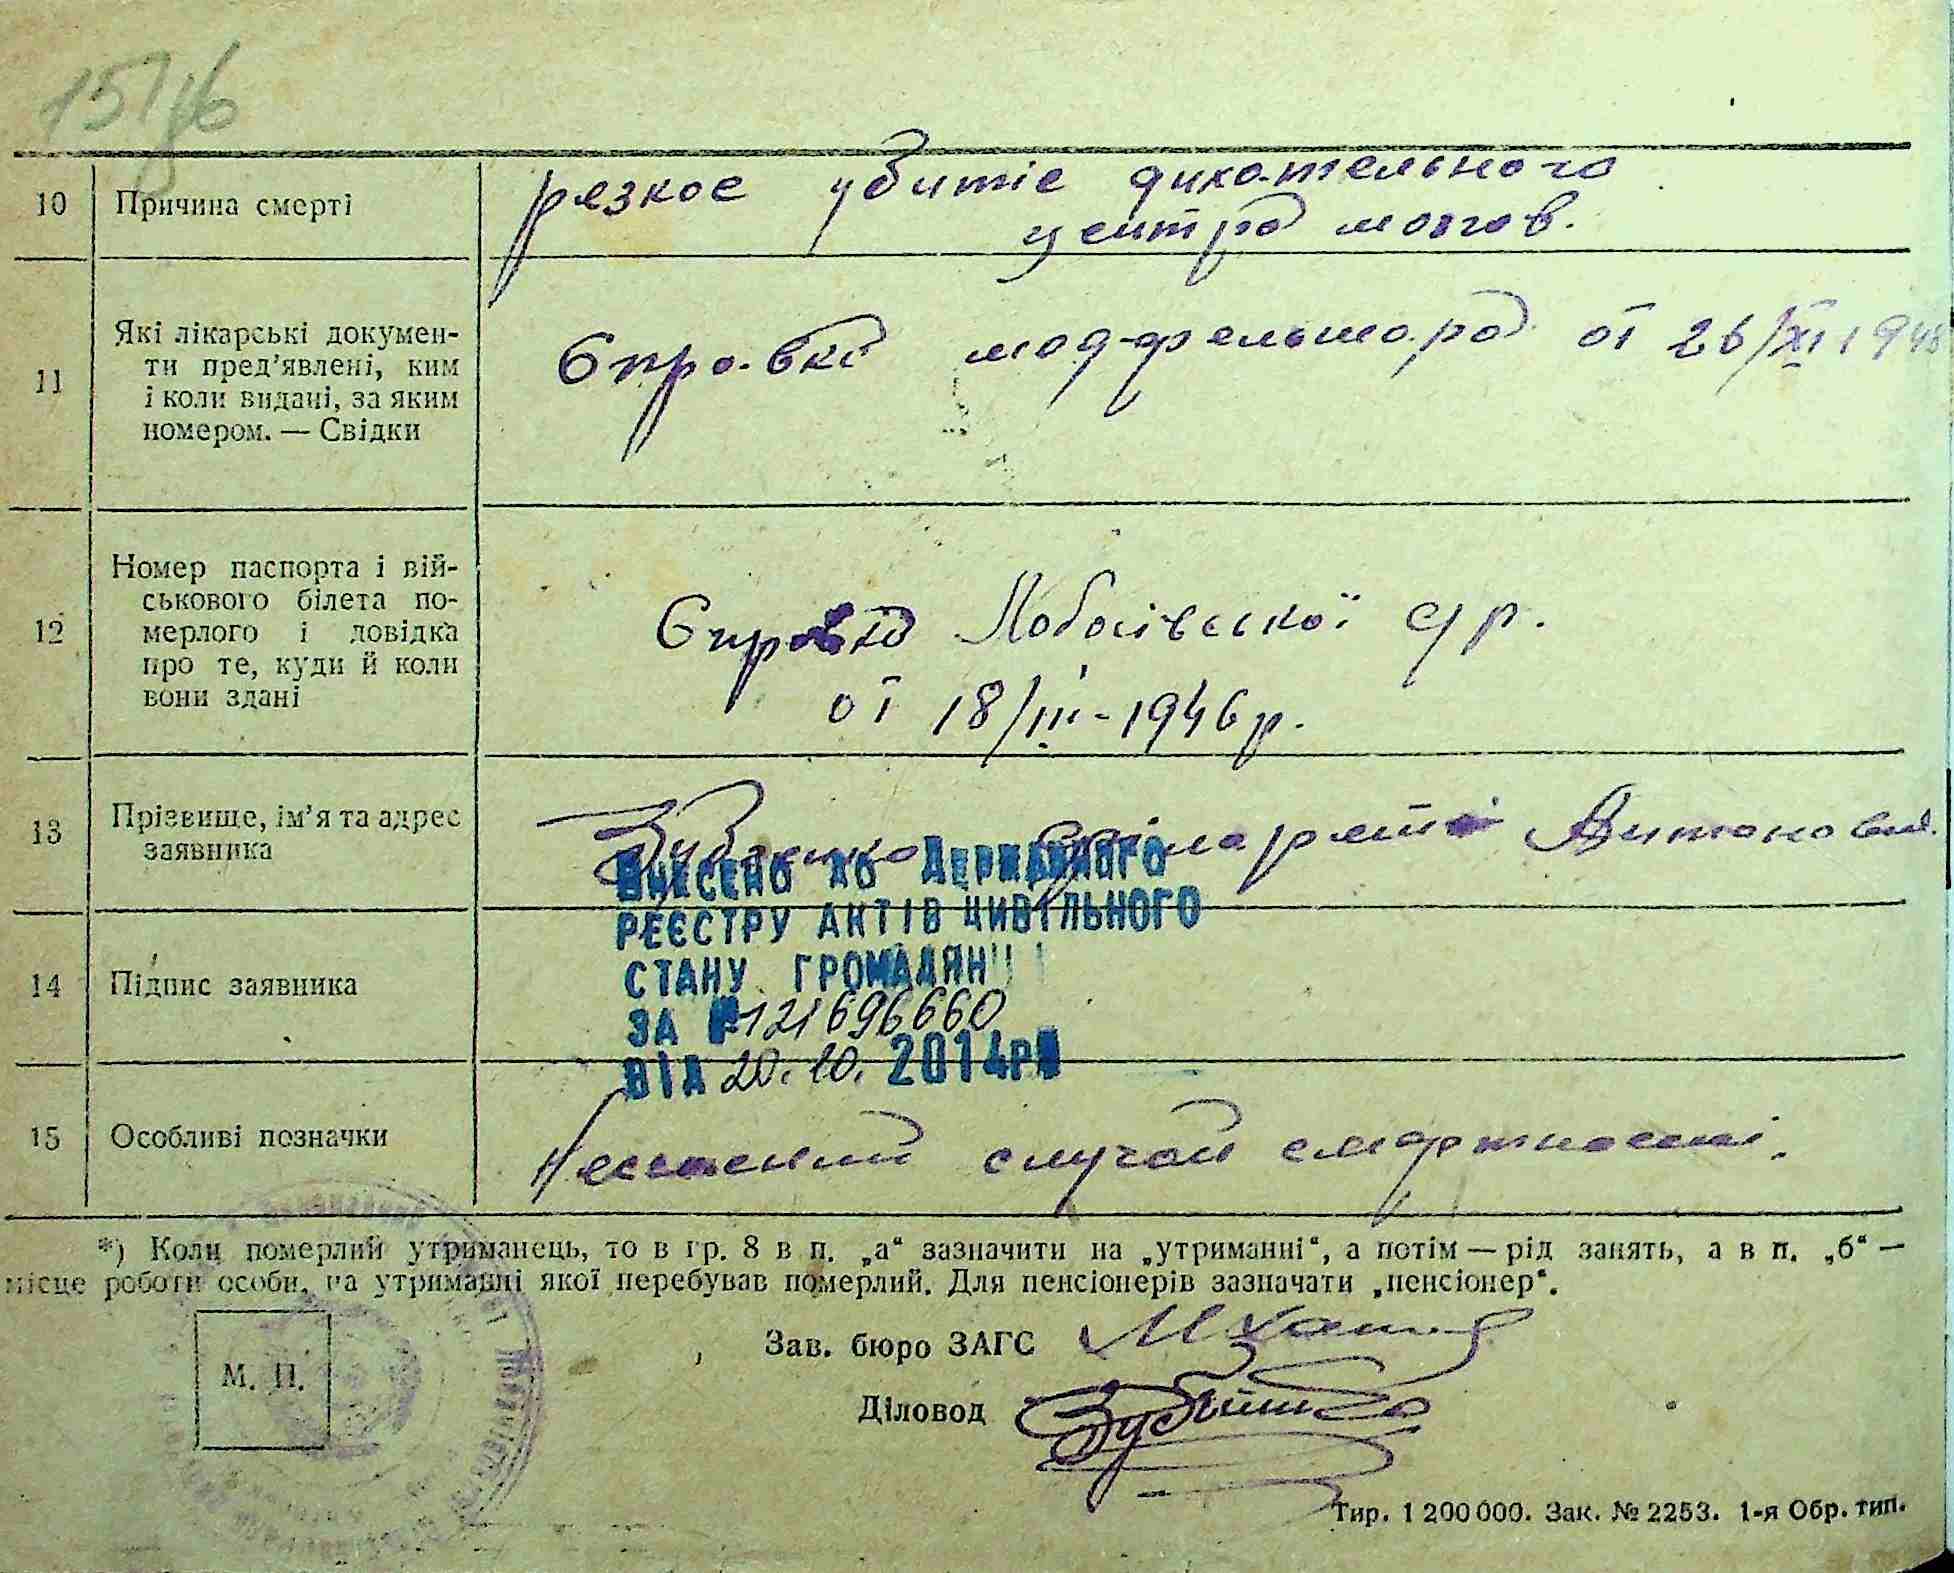 10 Причина смерті
резкое убитіе дихательного
центра мозгов.
11 Які лікарські докумен-
ти пред'явлені, ким
і коли видані, за яким
номером. — Свідки
Справка медфельшара от 26/XI 1948
12 Номер паспорта і вій-
ськового білета по-
мерлого і довідка
про те, куди й коли
вони здані
Справка с/р.
от 18/III-1946р.
13 Прізвище, ім'я та адрес
заявника
ВНЕСЕНО ДО ДЕРЖАВНОГО
РЕЄСТРУ АКТІВ ЦИВІЛЬНОГО
СТАНУ ГРОМАДЯН
ЗА № 121696660
ВІД 20.10. 2014р
14 Підпис заявника
15 Особливі позначки
случай смертности.
*) Коли померлий утриманець, то в гр. 8 в п. „а“ зазначити на „утриманні“, а потім — рід занять, а в п. „б“ —
місце роботи особи, на утриманні якої перебував померлий. Для пенсіонерів зазначати „пенсіонер“.
М. П.
Зав. бюро ЗАГС
Діловод
Тир. 1 200 000. Зак. № 2253. 1-я Обр. тип.